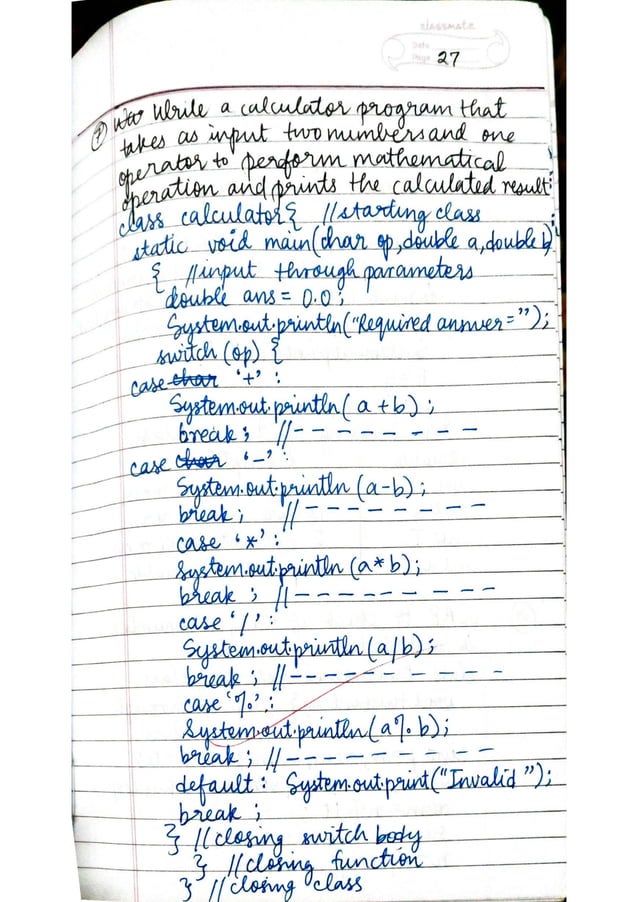 classmate
Date
Page 27
7) WAP Write a calculator program that
takes as input two numbers and one
operator to perform mathematical
operation and prints the calculated result.
class calculator{ //starting class
static void main(char op, double a, double b)
{ //input through parameters
double ans = 0.0;
System.out.println("Required answer=");
switch (op) {
case char '+' :
System.out.println( a + b) ;
break ; //- - - - - - - -
case char '-' :
System.out.println (a-b) ;
break ; //- - - - - - - -
case '*' :
System.out.println (a* b) ;
break ; //- - - - - - - - -
case '/' :
System.out.println (a/b) ;
break ; //- - - - - - - - -
case '%' :
System.out.println (a % b) ;
break ; //- - - - - - - - -
default : System.out.print("Invalid ");
break ;
} //closing switch body
} //closing function
} //closing class